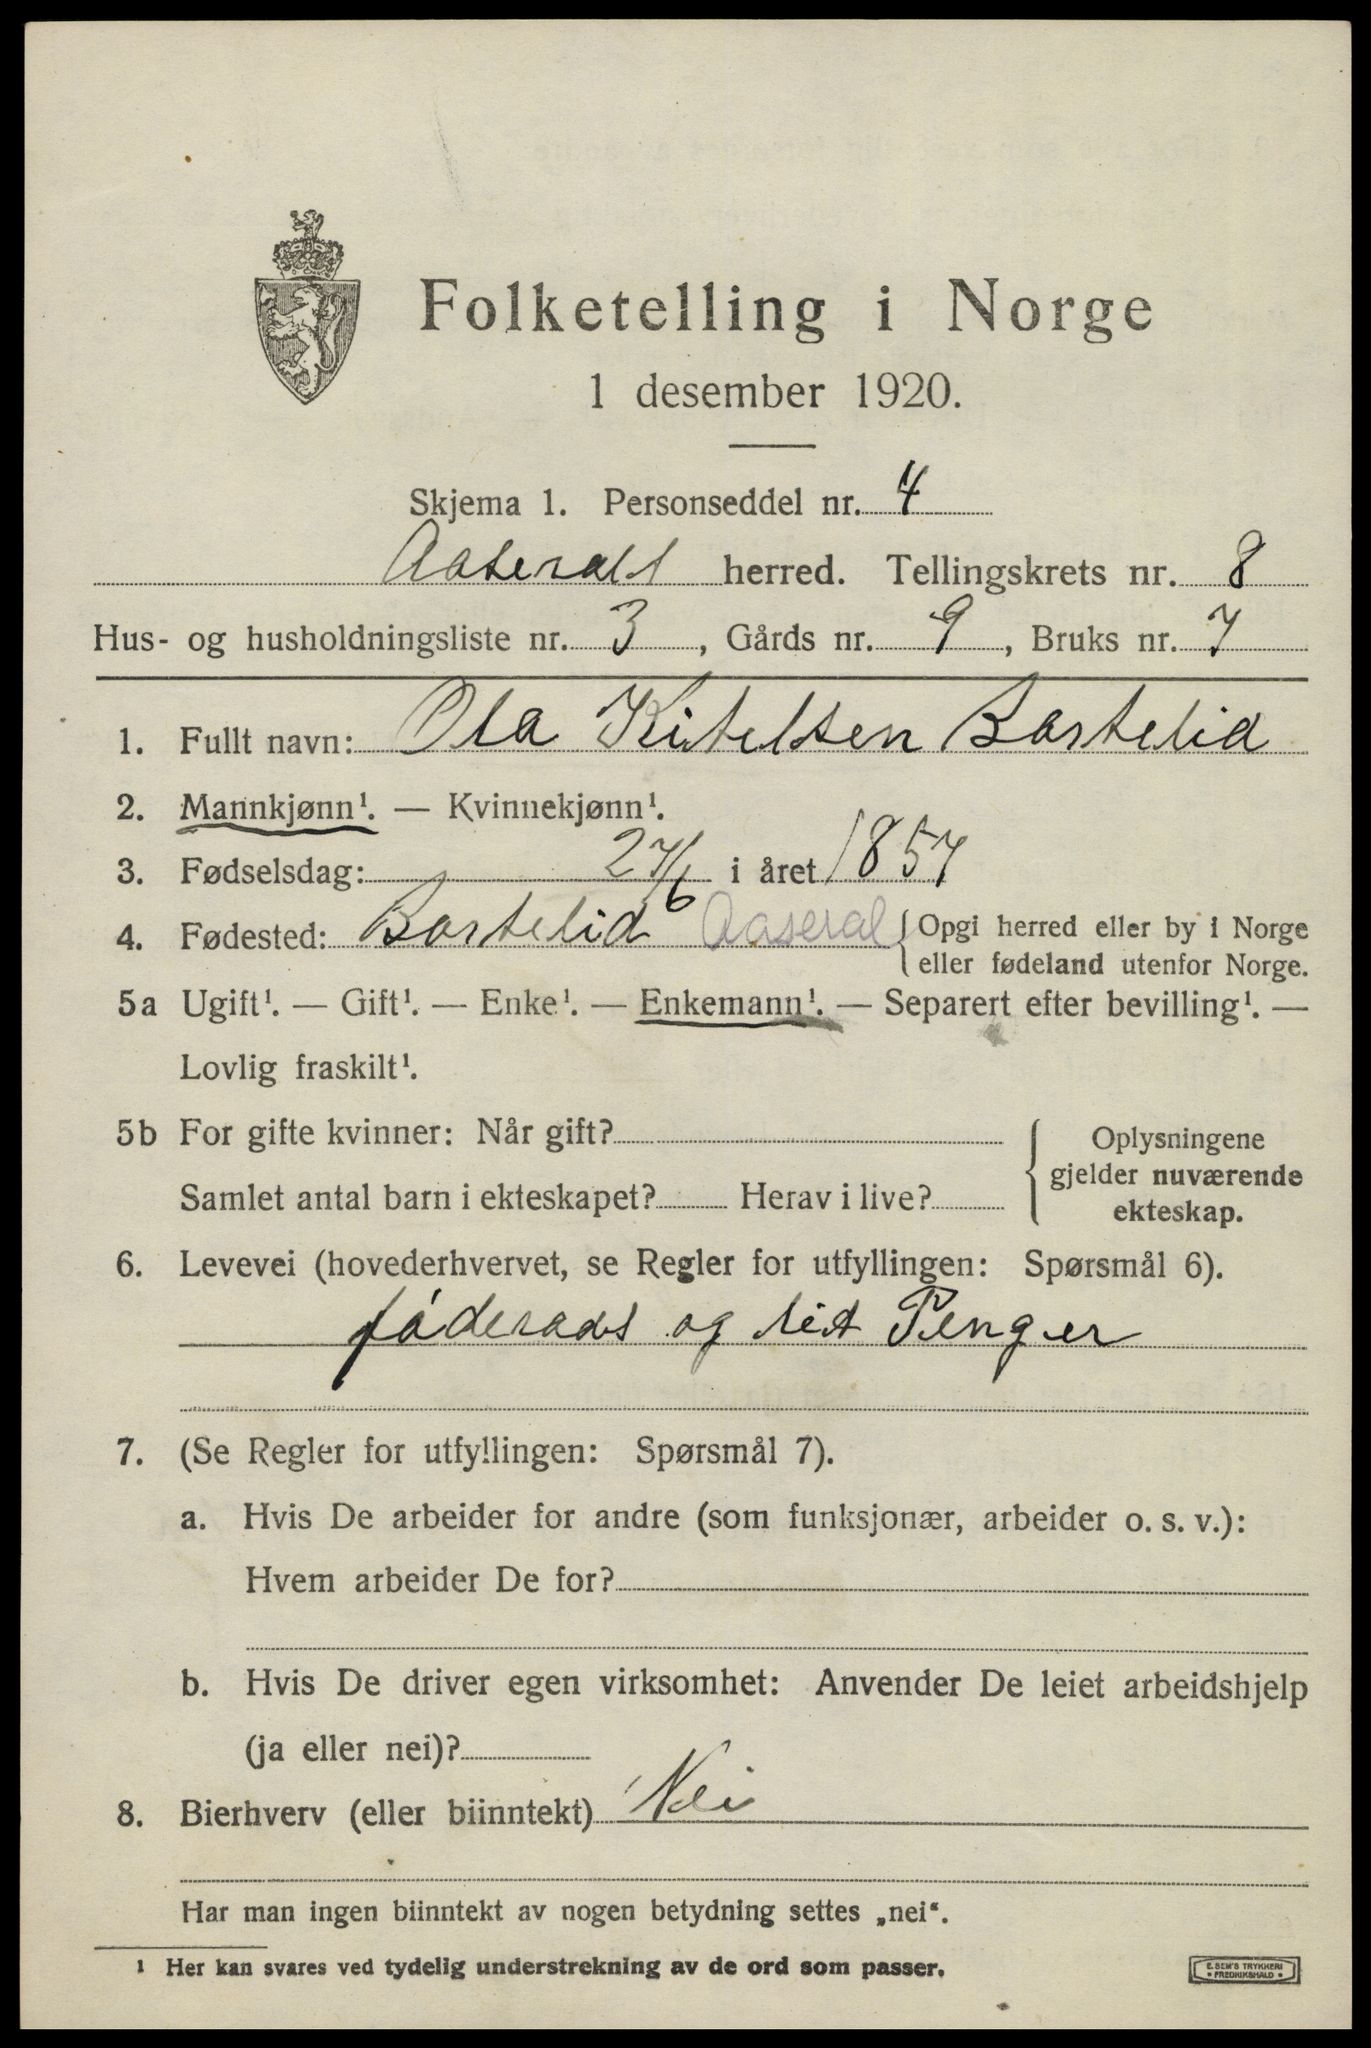 Folketelling i Norge
1 desember 1920.
Skjema 1. Personseddel nr. 4
Aaseralt herred. Tellingskrets nr. 8
Hus- og husholdningsliste nr. 3, Gårds nr. 9, Bruks nr. 7
1. Fullt navn: Ola Kitelsen Bortelid
2. Mannkjønn¹. — Kvinnekjønn¹.
3. Fødselsdag: 27/6 i året 1857
4. Fødested: Bortelid Aaseral {Opgi herred eller by i Norge
eller fødeland utenfor Norge.
5a Ugift¹. — Gift¹. — Enke¹. — Enkemann¹. — Separert efter bevilling¹. —
Lovlig fraskilt¹.
5b For gifte kvinner: Når gift?
Samlet antal barn i ekteskapet? Herav i live?
Oplysningene
gjelder nuværende
ekteskap.
6. Levevei (hovederhvervet, se Regler for utfyllingen: Spørsmål 6).
föderads og lit Penger
7. (Se Regler for utfyllingen: Spørsmål 7).
a. Hvis De arbeider for andre (som funksjonær, arbeider o. s. v.):
Hvem arbeider De for?
b. Hvis De driver egen virksomhet: Anvender De leiet arbeidshjelp
(ja eller nei)?
8. Bierhverv (eller biinntekt) Nei
Har man ingen biinntekt av nogen betydning settes „nei“.
¹ Her kan svares ved tydelig understrekning av de ord som passer.
E. SEM'S TRYKKERI
• FREDRIKSHALD •